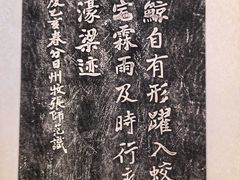 鯨自有形躍入蛟
宅霖雨及時行
濠梁迹
己亥春分日州牧張師范識